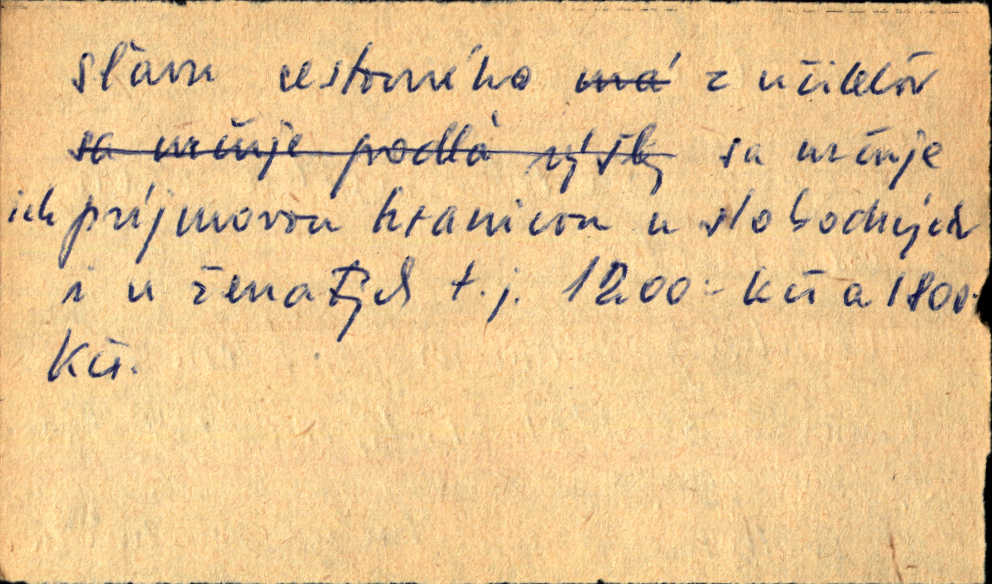 sľavu cestovného ~~má~~ z učiteľov
~~sa určuje podľa výšky~~ sa určuje
ich príjmovou hranicou u slobodných
i u ženatých t.j. 1200.- kčs a 1800.-
Kčs.